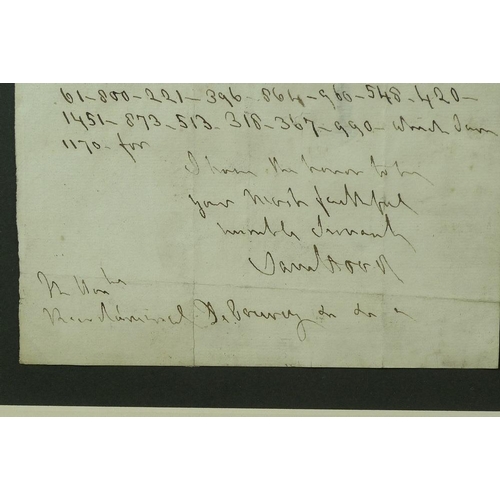 61-800-221-396-864-960-548-420-
1451-873-513-318-367-990- which I am
1170- for
I have the honor to be
your most faithful
humble Servant
Saml Hood
The Honble
Rear Admiral